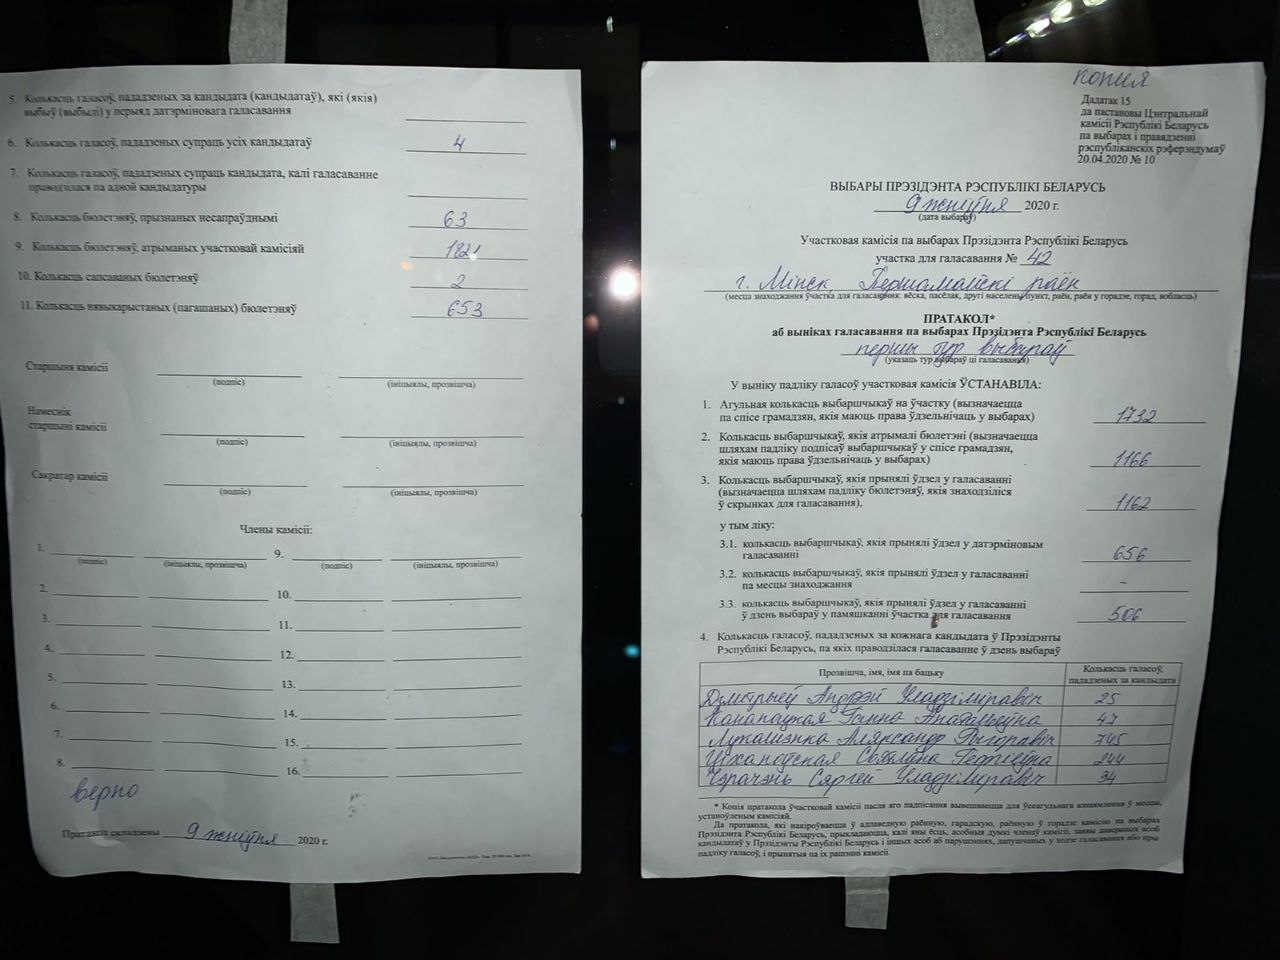 5. Колькасць галасоў, пададзеных за кандыдата (кандыдатаў), які (якія)
выбыў (выбылі) у перыяд датэрміновага галасавання
6. Колькасць галасоў, пададзеных супраць усіх кандыдатаў 4
7. Колькасць галасоў, пададзеных супраць кандыдата, калі галасаванне
праводзілася па адной кандыдатуры
8. Колькасць бюлетэняў, прызнаных несапраўднымі 63
9. Колькасць бюлетэняў, атрыманых участковай камісіяй 1821
10. Колькасць сапсаваных бюлетэняў 2
11. Колькасць нявыкарыстаных (пагашаных) бюлетэняў 653
Старшыня камісіі
(подпіс) (ініцыялы, прозвішча)
Намеснік
старшыні камісіі
(подпіс) (ініцыялы, прозвішча)
Сакратар камісіі
(подпіс) (ініцыялы, прозвішча)
Члены камісіі:
1. 9.
(подпіс) (ініцыялы, прозвішча) (подпіс) (ініцыялы, прозвішча)
2. 10.
3. 11.
4. 12.
5. 13.
6. 14.
7. 15.
8. 16.
верно
Пратакол складзены 9 жніўня 2020 г.
копия
Дадатак 15
да пастановы Цэнтральнай
камісіі Рэспублікі Беларусь
па выбарах і правядзенні
рэспубліканскіх рэферэндумаў
20.04.2020 № 10
ВЫБАРЫ ПРЭЗІДЭНТА РЭСПУБЛІКІ БЕЛАРУСЬ
9 жніўня 2020 г.
(дата выбараў)
Участковая камісія па выбарах Прэзідэнта Рэспублікі Беларусь
участка для галасавання № 42
г. Мінск Першамайскі раён
(месца знаходжання ўчастка для галасавання: вёска, пасёлак, другі населены пункт, раён, раён у горадзе, горад, вобласць)
ПРАТАКОЛ*
аб выніках галасавання па выбарах Прэзідэнта Рэспублікі Беларусь
першы тур выбараў
(указаць тур выбараў ці галасавання)
У выніку падліку галасоў участковая камісія ЎСТАНАВІЛА:
1. Агульная колькасць выбаршчыкаў на ўчастку (вызначаецца
па спісе грамадзян, якія маюць права ўдзельнічаць у выбарах) 1732
2. Колькасць выбаршчыкаў, якія атрымалі бюлетэні (вызначаецца
шляхам падліку подпісаў выбаршчыкаў у спісе грамадзян,
якія маюць права ўдзельнічаць у выбарах) 1166
3. Колькасць выбаршчыкаў, якія прынялі ўдзел у галасаванні
(вызначаецца шляхам падліку бюлетэняў, якія знаходзіліся
ў скрынках для галасавання), 1162
у тым ліку:
3.1. колькасць выбаршчыкаў, якія прынялі ўдзел у датэрміновым
галасаванні 656
3.2. колькасць выбаршчыкаў, якія прынялі ўдзел у галасаванні
па месцы знаходжання –
3.3. колькасць выбаршчыкаў, якія прынялі ўдзел у галасаванні
ў дзень выбараў у памяшканні ўчастка для галасавання 506
4. Колькасць галасоў, пададзеных за кожнага кандыдата ў Прэзідэнты
Рэспублікі Беларусь, па якіх праводзілася галасаванне ў дзень выбараў
Прозвішча, імя, імя па бацьку Колькасць галасоў,
пададзеных за кандыдата
Дзмітрыеў Андрэй Уладзіміравіч 25
Канапацкая Ганна Анатольеўна 47
Лукашэнка Аляксандр Рыгоравіч 745
Ціханоўская Святлана Георгіеўна 244
Чэрачэнь Сяргей Уладзіміравіч 34
* Копія пратакола ўчастковай камісіі пасля яго падпісання вывешваецца для ўсеагульнага азнаямлення ў месцы,
устаноўленым камісіяй.
Да пратакола, які накіроўваецца ў адпаведную раённую, гарадскую, раённую ў горадзе камісію па выбарах
Прэзідэнта Рэспублікі Беларусь, прыкладаюцца, калі яны ёсць, асобныя думкі членаў камісіі, заявы давераных асоб
кандыдатаў у Прэзідэнты Рэспублікі Беларусь і іншых асоб аб парушэннях, дапушчаных у ходзе галасавання або пры
падліку галасоў, і прынятыя па іх рашэнні камісіі.